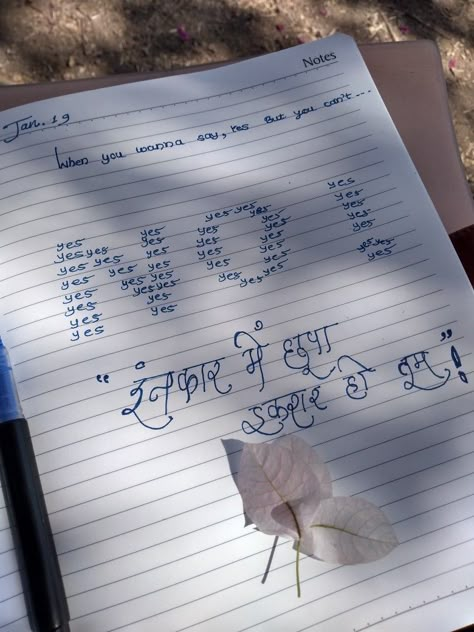 Notes
Jan. 19
When you wanna say, Yes But you can't...
yes yes yes yes yes
yes yes yes yes yes yes
yes yes yes yes yes yes
yes yes yes yes yes yes
yes yes yes yes yes yes
yes yes yes yes yes yes yes
yes yes yes yes yes yes
yes yes
“इंनकार में छूपा
इकरार हो तूम”!